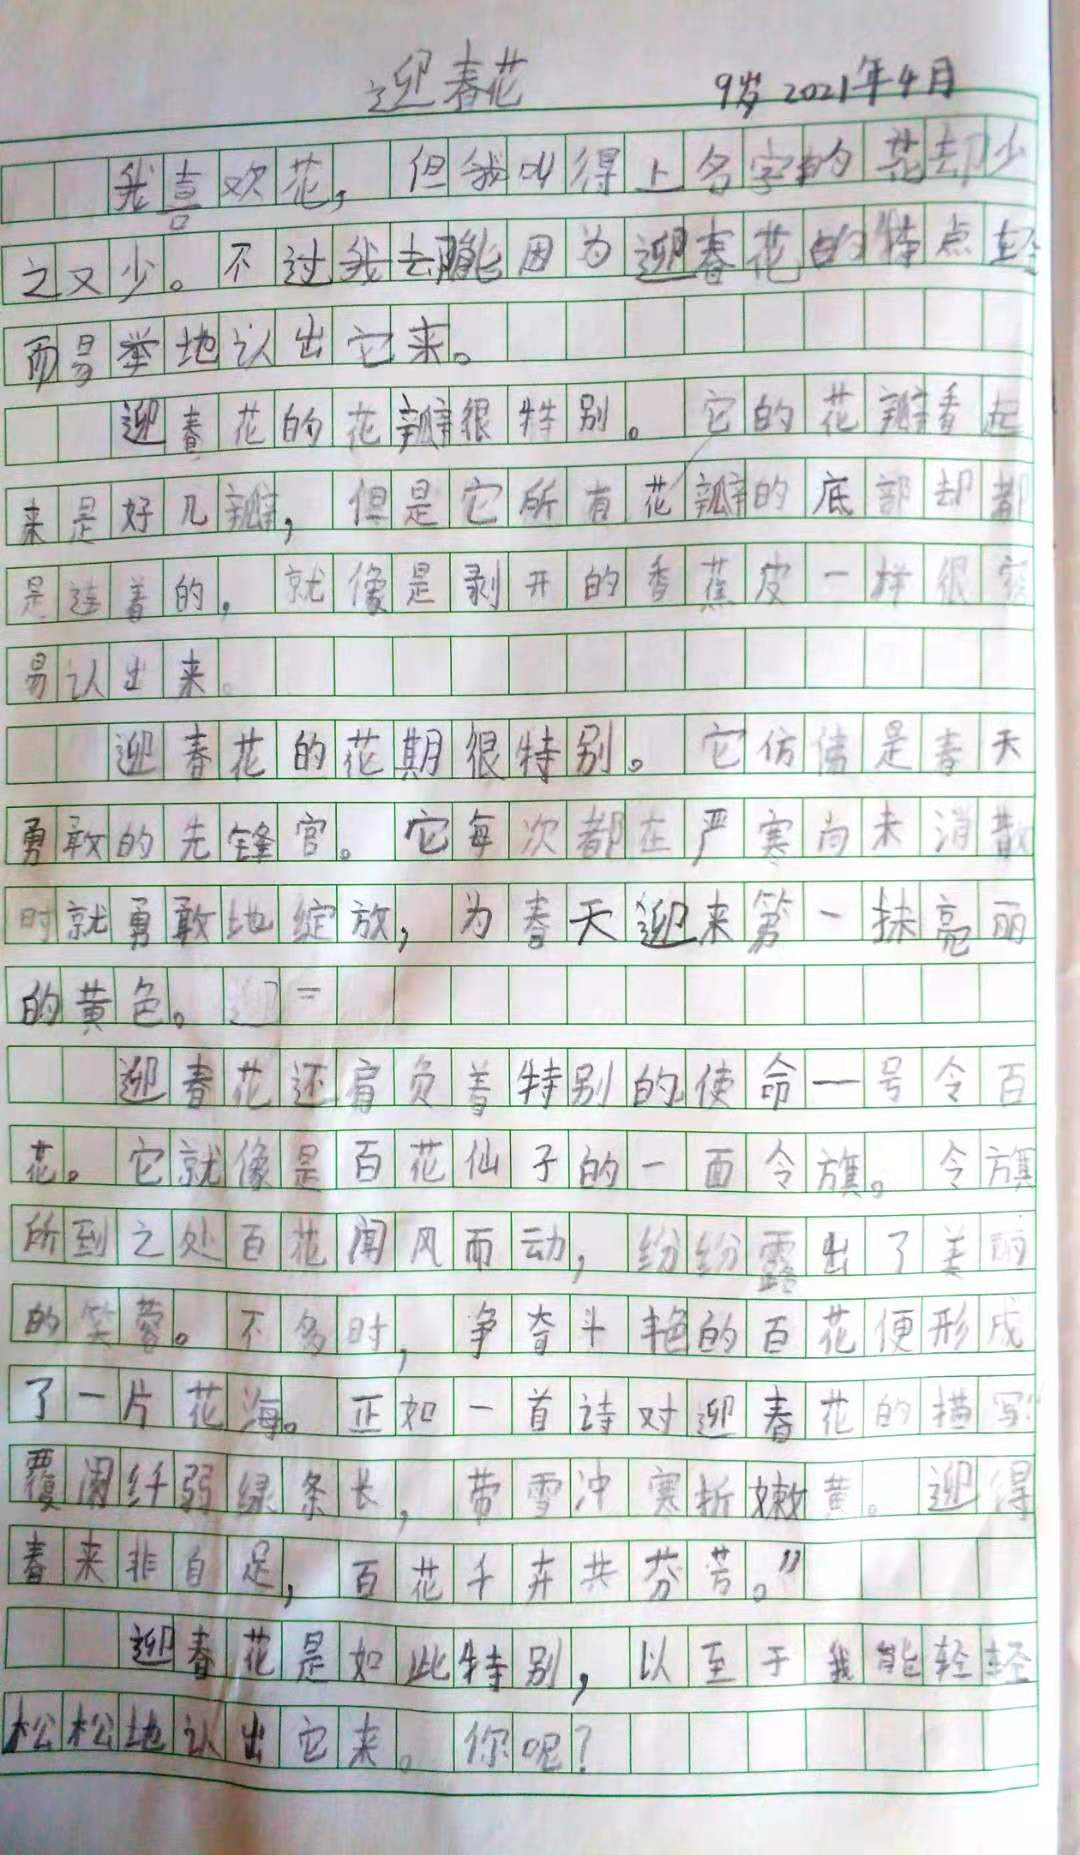 迎春花 9岁 2021年4月
我喜欢花，但我叫得上名字的花却少
之又少。不过我去能因为迎春花的特点轻
而易举地认出它来。
迎春花的花瓣很特别。它的花瓣看起
来是好几瓣，但是它所有花瓣的底部却都
是连着的，就像是剥开的香蕉皮一样很容
易认出来。
迎春花的花期很特别。它仿佛是春天
勇敢的先锋官。它每次都在严寒尚未消散
时就勇敢地绽放，为春天迎来第一抹亮丽
的黄色。
迎春花还肩负着特别的使命一号令百
花。它就像是百花仙子的一面令旗。令旗
所到之处百花闻风而动，纷纷露出了美丽
的笑容。不多时，争奇斗艳的百花便形成
了一片花海。正如一首诗对迎春花的描写：“
覆阑纤弱绿条长，带雪冲寒折嫩黄。迎得
春来非自足，百花千卉共芬芳。”
迎春花是如此特别，以至于我能轻轻
松松地认出它来。你呢？